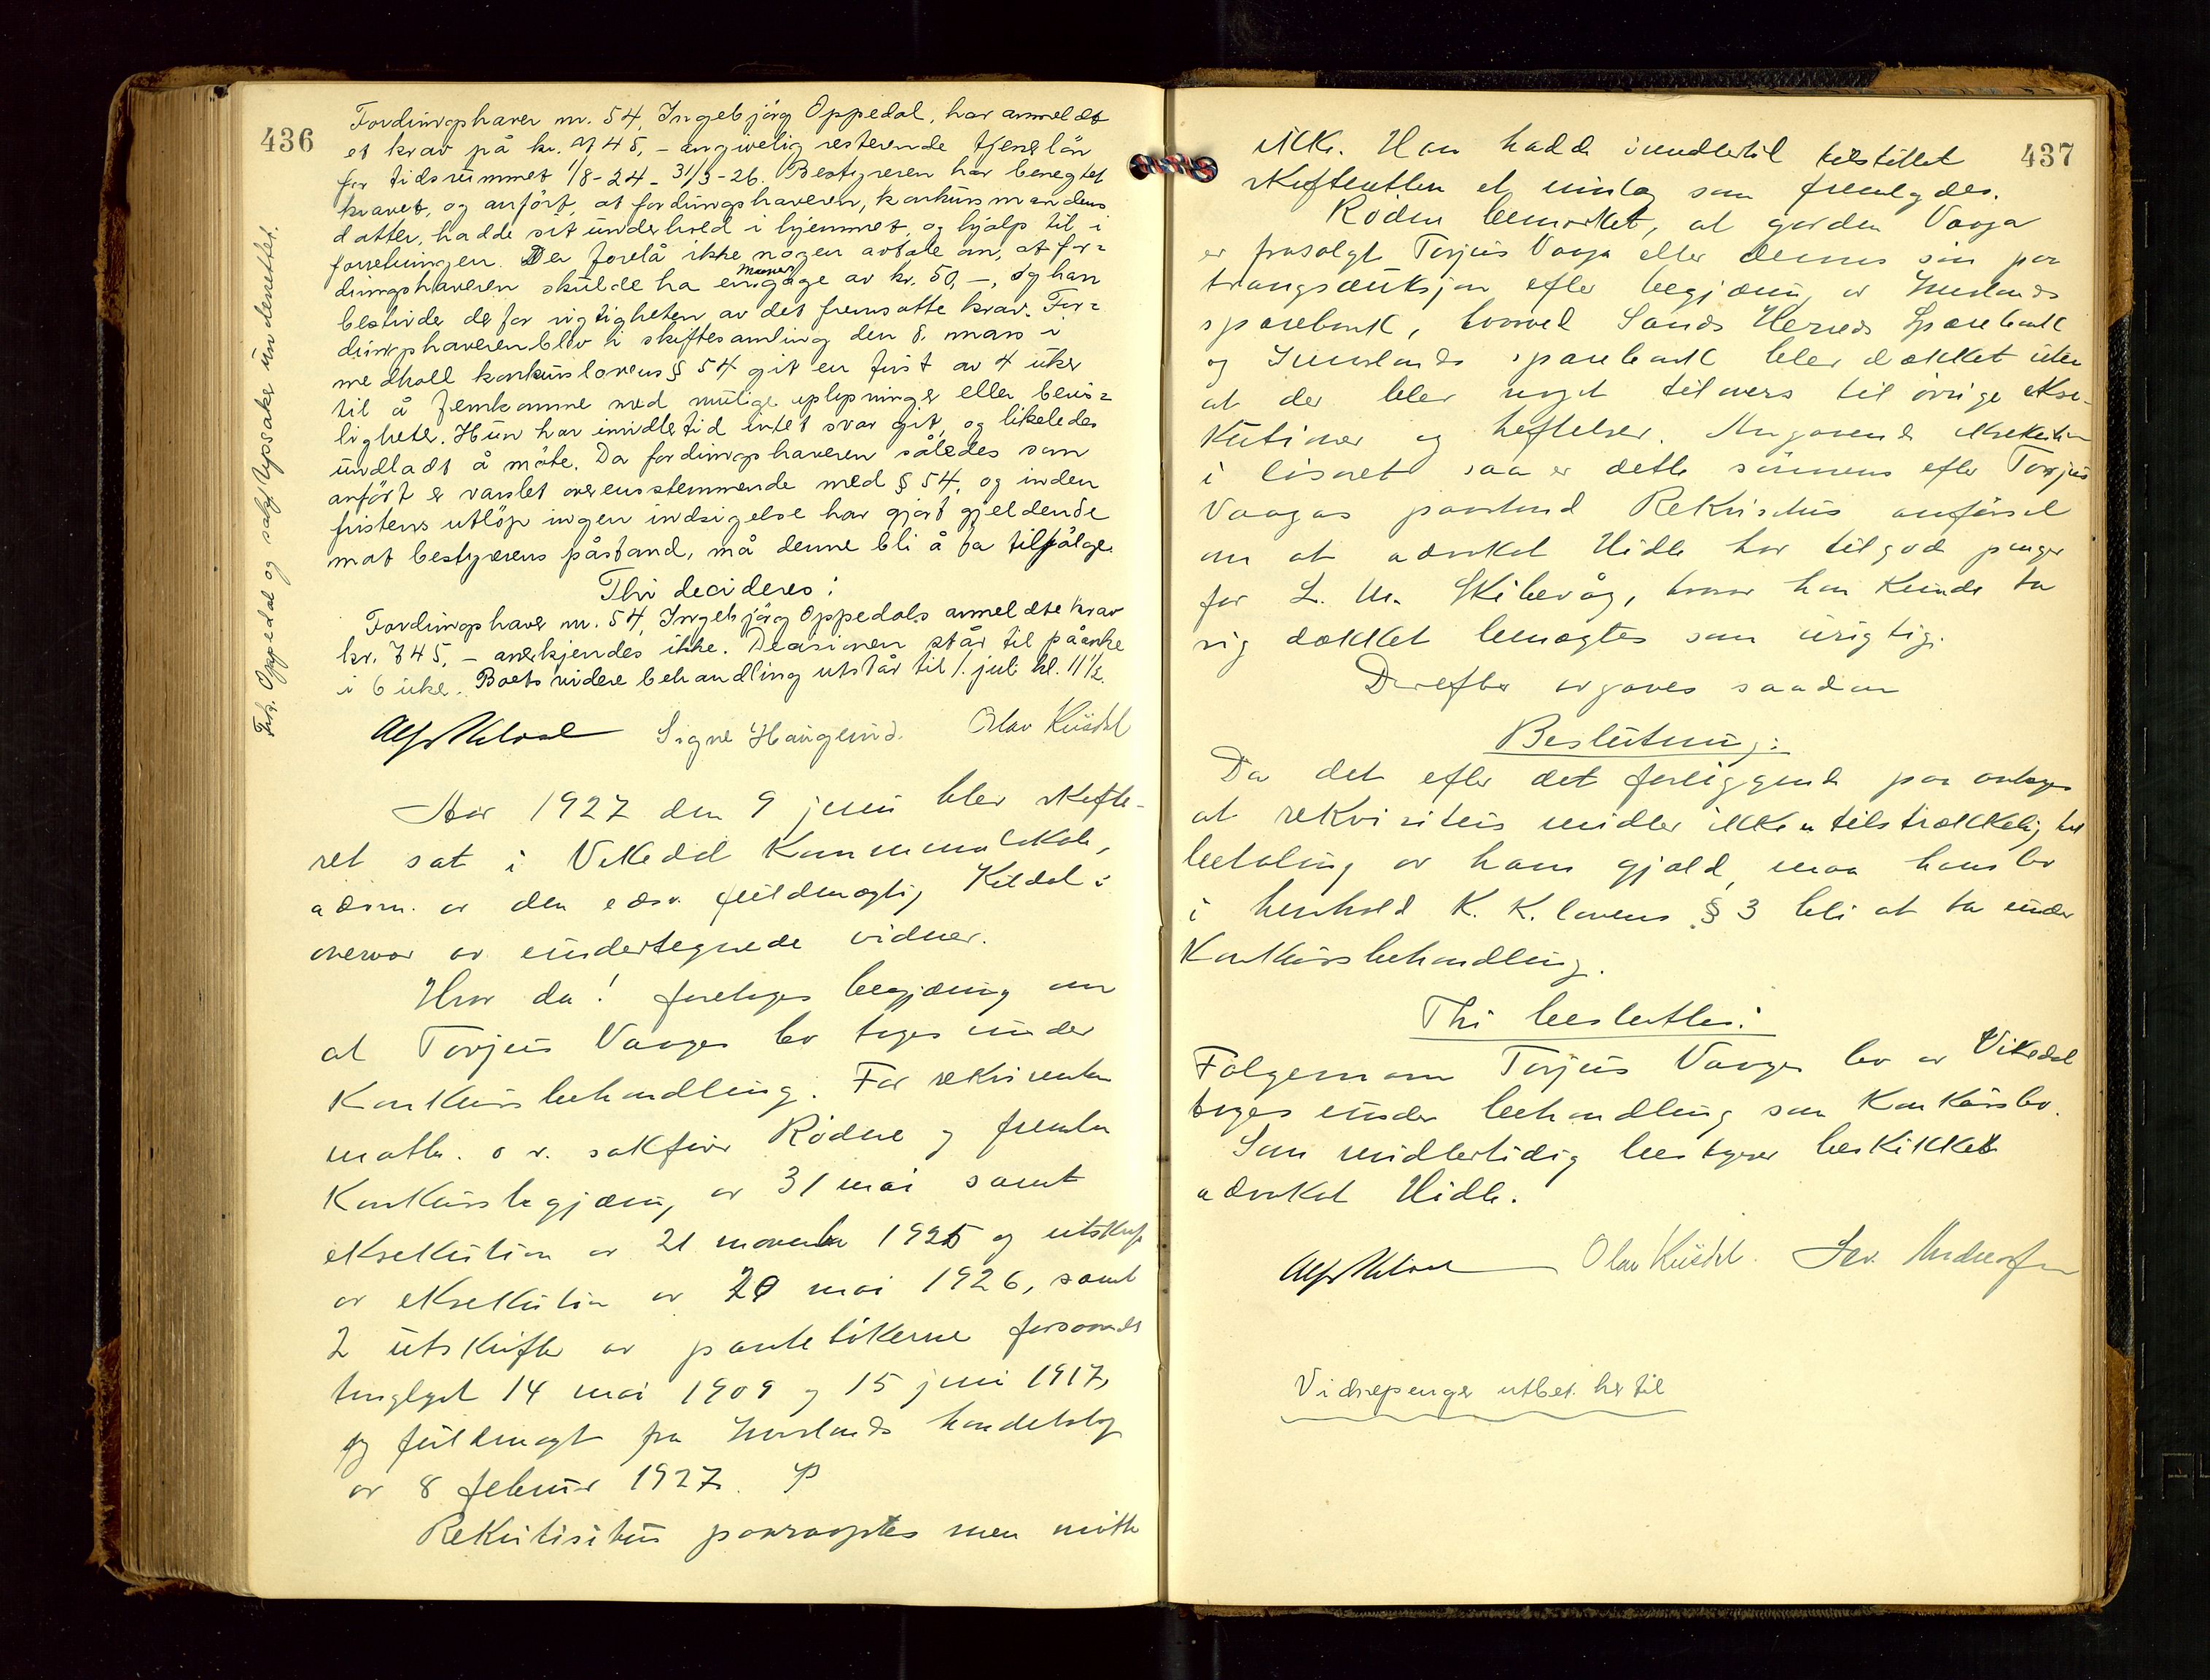 436
Fordringshaver nr. 54, Ingebjörg Oppedal, har anmeldt
et krav på kr. 745,- angivelig resterende tjenerlön
for tidsrummet 1/8-24 - 31/3-26. Bestyreren har benegtet
kravet, og anfört, at fordringshaveren, konkursmandens
datter, hadde sit underhold i hjemmet, og hjalp til i
forretningen. Der forelå ikke nogen avtale om, at for-
dringshaveren skulde ha en gage av kr. 50,-, og han
bestrider derfor rigtigheten av det fremsatte krav. For-
dringshaveren blev i skiftesamling den 8. mars i
medhold konkurslovens § 54 git en frist av 4 uker
til å fremkomme med mulige oplysninger eller bevis-
ligheter. Hun har imidlertid intet svar git, og likeledes
undladt å möte. Da fordringshaveren således som
anfört er varslet overensstemmende med § 54, og inden
fristens utlöp ingen indsigelse har gjort gjeldende
mot bestyrerens påstand, må denne bli å ta tilfölge.
Thi decideres:
Fordringshaver nr. 54, Ingebjörg Oppedals anmeldte krav
kr. 745,- anerkjendes ikke. Decisionen står til påanke
i 6 uker. Boets videre behandling utstår til 1. juli kl. 11 1/2.
Signe Haugland. Olav Kusdal
Frh. Oppedal og salg Upsaker underrettet.
Aar 1927 den 9 juni blev skifte-
ret sat i Vikedal Kommunelokale,
adm. av den edsv. fuldmægtig Kildal i
overvær av undertegnede vidner.
Hvor da! foretoges begjæring om
at Torjus Vaages bo toges under
Konkursbehandling. For rekvirenten
møtte o.r. sakförer Rödne og fremla
Konkursbegjæring av 31 mai samt
eksekution av 21 november 1925 og utskrift
av eksekution av 20 mai 1926, samt
2 utskrifter av pantebökerne forsaavidt
tinglyst 14 mai 1909 og 15 juni 1917,
og fuldmagt fra Imslands handelslag
av 8 februar 1927.
Rekvisitus paaraaptes men møtte
437
ikke. Han hadde imidlertid tilstillet
skifteretten et inlæg som fremlagdes.
Rödne bemerket, at garden Vaaga
er frasolgt Torjus Vaaga eller dennes sön paa
tvangsauksjon efter begjæring av Imslands
sparebank, hvorved Sands Herreds Sparebank
og Imslands sparebank blev dækket uten
at der blev noget tilovers til övrige ekse-
kutioner og heftelser. Angaaende eksekution
i lösöret saa er dette sönnens efter Torjus
Vaagas paastand Rekvisitus anförsel
om at advokat Hidle har tilgode penger
for L. M. Skibevåg, hvorav han kunde ta
sig dækket benegtes som urigtig.
Derefter avgaves saadan
Beslutning:
Da det efter det foreliggende maa antages
at rekvisitus midler ikke er tilstrækkelig til
betaling av hans gjæld, maa hans bo
i henhold K. K. lovens § 3 bli at ta under
Konkursbehandling.
Thi besluttes:
Fölgemann Torjus Vaages bo av Vikedal
toges under behandling som Konkursbo.
Som midlertidig bestyrer beskikket
advokat Hidle.
Olav Kusdal. Sev. Andreassen
Vidnepenger utbet. her til